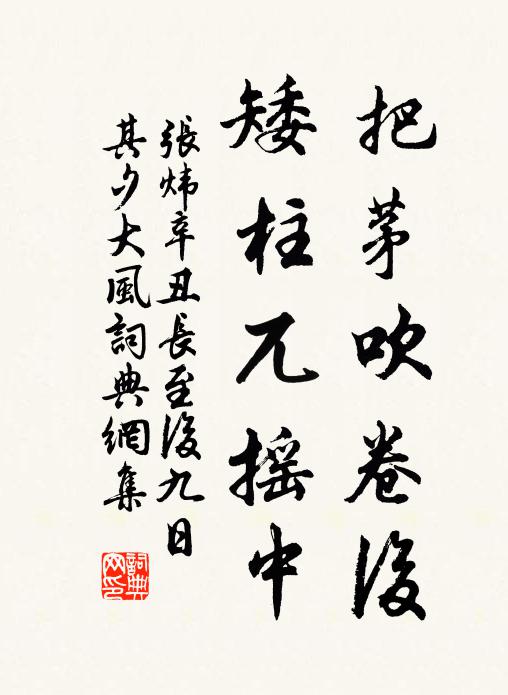 把茅吹卷後
矮柱兀摇中
張炜辛丑長至後九日
其夕大風詞典網集
詞典
网印